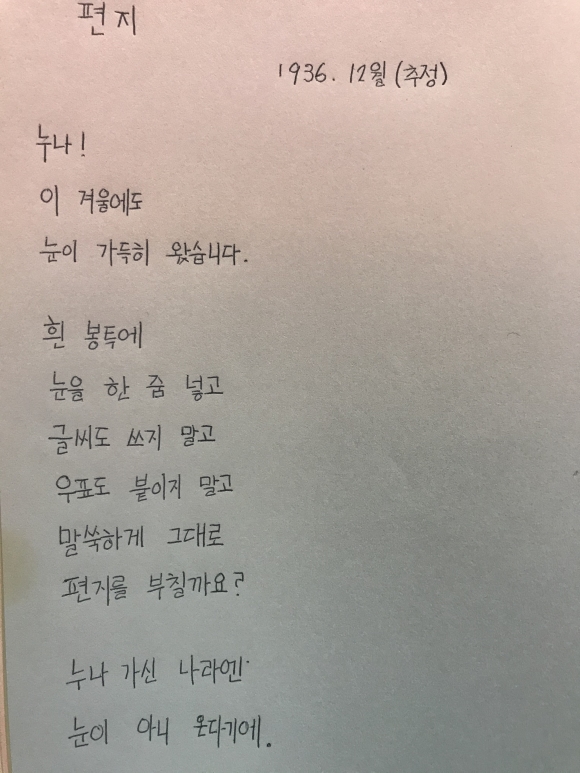 편지
1936. 12월 (추정)
누나!
이 겨울에도
눈이 가득히 왔습니다.
흰 봉투에
눈을 한 줌 넣고
글씨도 쓰지 말고
우표도 붙이지 말고
말쑥하게 그대로
편지를 부칠까요?
누나 가신 나라엔
눈이 아니 온다기에.